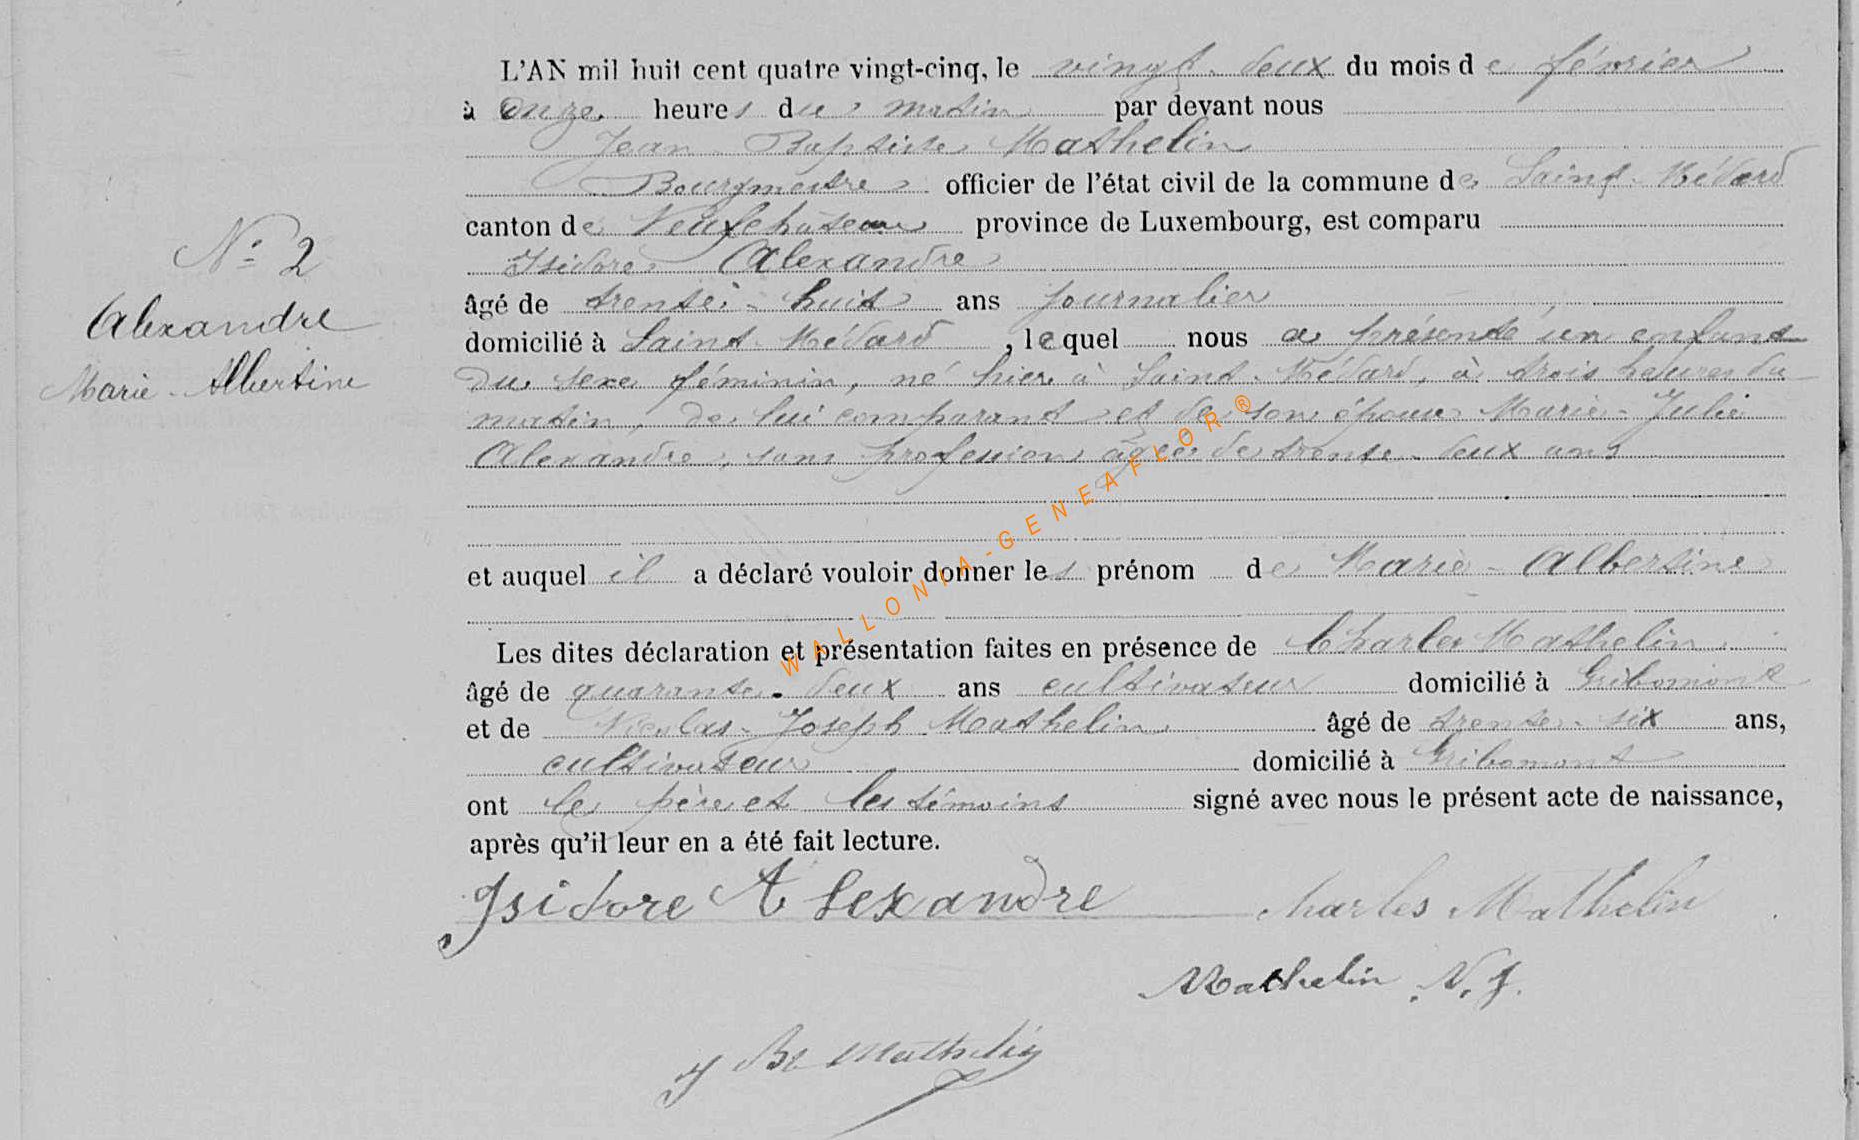 N° 2
Alexandre
Marie-Albertine
L'AN mil huit cent quatre vingt-cinq, le vingt-deux du mois de février
à onze heures du matin par devant nous
Jean Baptiste Mathelin
Bourgmestre officier de l'état civil de la commune de Saint-Médard
canton de Neufchâteau province de Luxembourg, est comparu
Isidore Alexandre
âgé de trente-huit ans journalier
domicilié à Saint-Médard, lequel nous a présenté un enfant
du sexe féminin, né hier à Saint-Médard, à trois heures du
matin, de lui comparant et de son épouse Marie-Julie
Alexandre, sans profession âgée de trente-deux ans
et auquel il a déclaré vouloir donner les prénom de Marie-Albertine
Les dites déclaration et présentation faites en présence de Charles Mathelin
âgé de quarante-deux ans cultivateur domicilié à Gribomont
et de Nicolas-Joseph Mathelin âgé de trente-six ans,
cultivateur domicilié à Gribomont
ont le père et les témoins signé avec nous le présent acte de naissance,
après qu'il leur en a été fait lecture.
Isidore Alexandre Charles Mathelin
Mathelin N. J.
J Bt Mathelin
WALLONIA-GENEAFLOR®